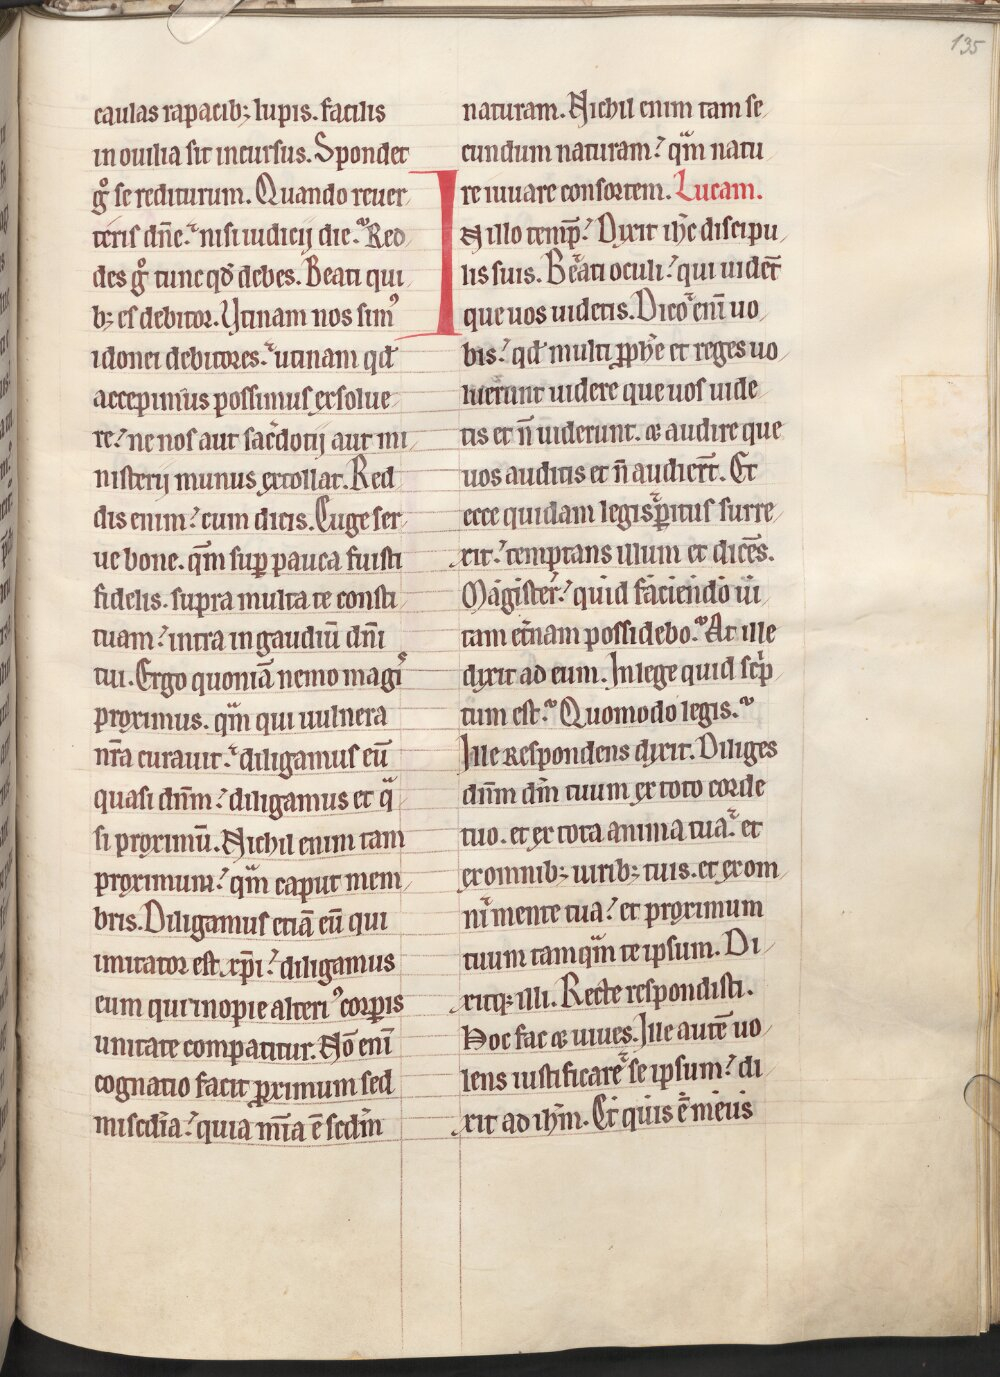 135
caulas rapacib; lupis. facilis
in ouilia sit incursus. Spondet
gͦ se rediturum. Quando reuer
teris dn̄e. nisi iudicij die. Red
des gͦ tunc qd̄ debes. Beati qui
b; es debitor. Vtinam nos sim᷒
idonei debitores. utinam qd̄
accepimus possimus exsolue
re. ne nos aut sac̄dotij aut mi
nisterij munus extollat. Red
dis enim. cum dicis. Euge ser
ue bone. qm̄ sup̱ pauca fuisti
fidelis. supra multa te consti
tuam. intra in gaudiū dn̄i
tui. Ergo quoniā nemo magis
proximus. qm̄ qui uulnera
nr̄a curauit. diligamus eū
quasi dn̄m. diligamus et qͣ
si proximū. Nichil enim tam
proximum. qͣm caput mem
bris. Diligamus etiā eū qui
imitator est xp̄i. diligamus
eum qui inopie alteri᷒ corp̱is
unitate compatitur. Nō eni̅
cognatio facit ꝓximum sed
misc̄dia. quia mi̅a ē sc̄dm
naturam. Nichil enim tam se
cundum naturam. qͣm natu
re iuuare consortem. Lucam.
In illo temp̄. Dixit ihc̄ discipu
lis suis. Beati oculi. qui uident̄
que uos uidetis. Dico eni̅ uo
bis. qd̄ multi ꝓphe̅ et reges uo
luerunt uidere que uos uide
tis et n̄ uiderunt. & audire que
uos auditis et n̄ audier̄t. Et
ecce quidam legisp̱itus surre
xit. temptans illum et dice̅s.
Magister. quid faciendo ui
tam et̄nam possidebo. At ille
dixit ad eum. In lege quid sc̄p
tum est. Quomodo legis.
Ille respondens dixit. Diliges
dn̄m dm̄ tuum ex toto corde
tuo. et ex tota anima tua. et
ex omnib; uirib; tuis. et ex om
ni mente tua. et proximum
tuum tamqͣm te ipsum. Di
xitq; illi. Recte respondisti.
Hoc fac & uiues. Ille aute̅ uo
lens iustificare se ipsum. di
xit ad ihm̄. Et quis ē meus